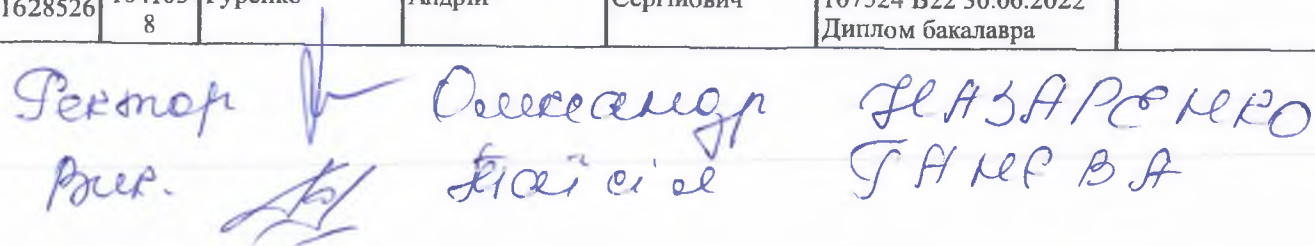 1628526 Гуренко Андрій Сергійович 107524 B22 30.06.2022
8 Диплом бакалавра
Ректор Олександр НАЗАРЕНКО
Вик. Таїсія ГАНЄВА